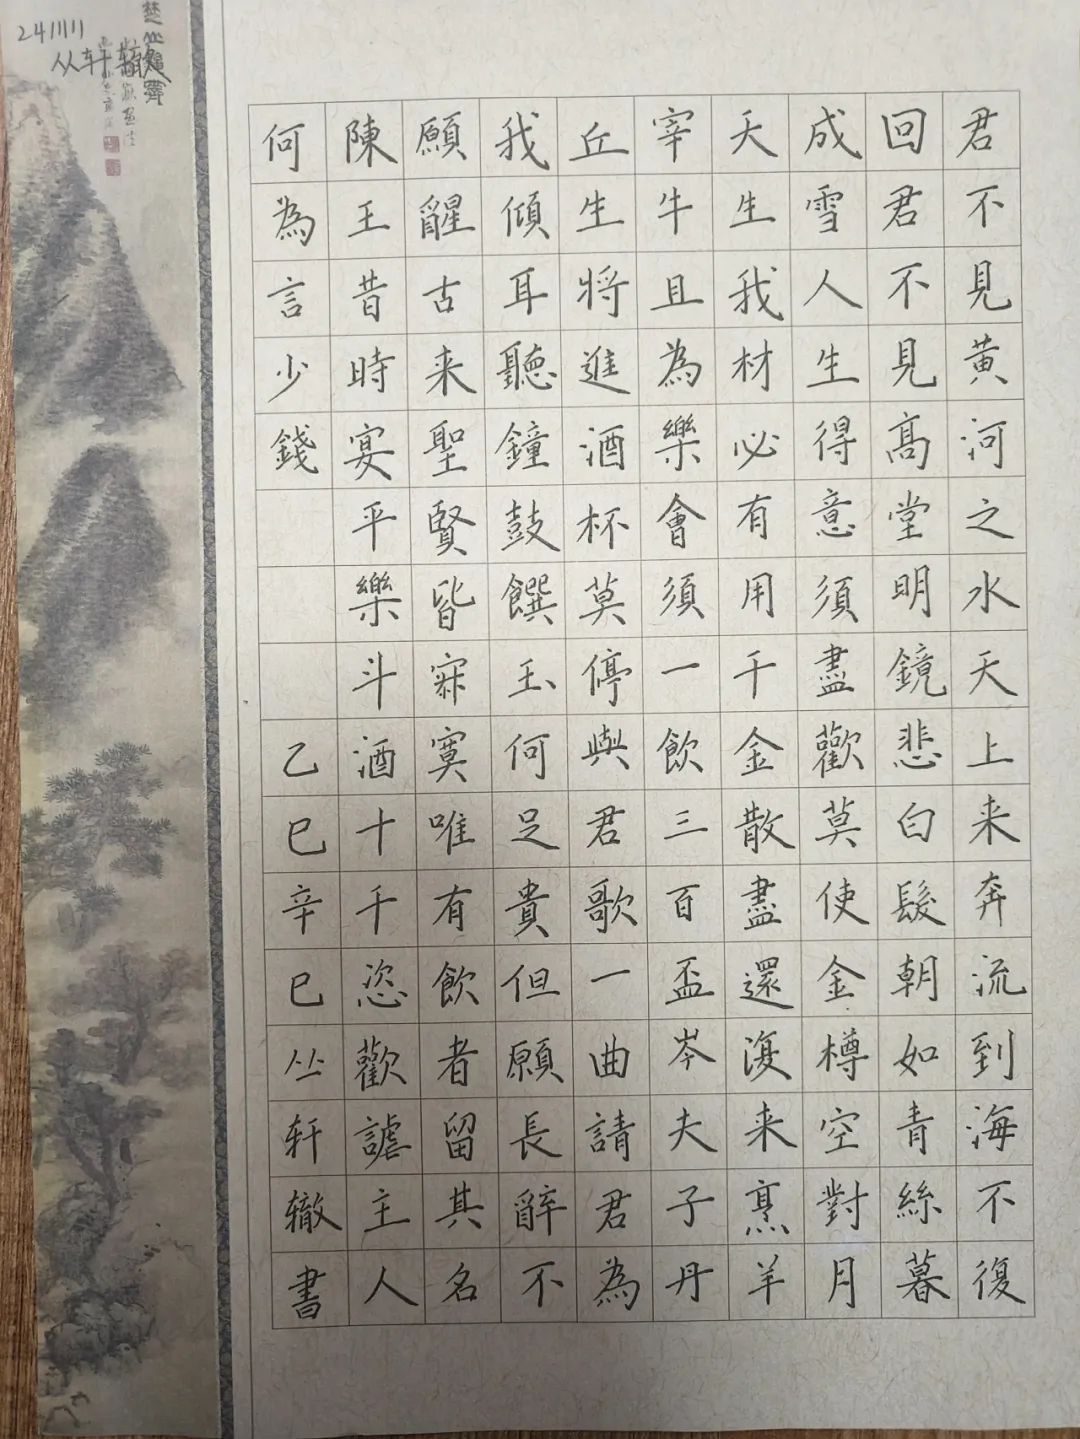 君不見黃河之水天上来奔流到海不復
回君不見高堂明鏡悲白髮朝如青絲暮
成雪人生得意須盡歡莫使金樽空對月
天生我材必有用千金散盡還復来烹羊
宰牛且為樂會須一飲三百盃岑夫子丹
丘生将進酒杯莫停與君歌一曲請君為
我傾耳聽鐘鼓饌玉何足貴但願長辭不
願醒古来聖賢皆寂寞唯有飲者留其名
陳王昔時宴平樂斗酒十千恣歡謔主人
何為言少錢
乙巳辛巳丛轩辙書
241111